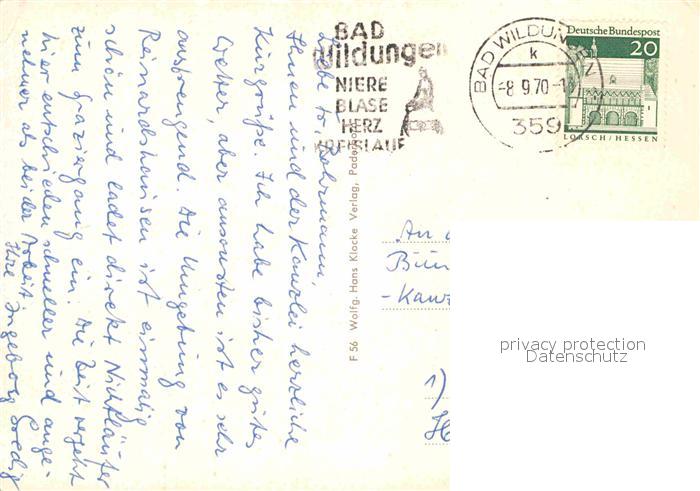 BAD
Wildungen
NIERE
BLASE
HERZ
KREISLAUF
BAD WILDUNGEN
k
-8.9.70-1
359
Deutsche Bundespost
20
LORSCH/HESSEN
Ihnen und der Kanzlei herzliche
Kurgrüße. Ich habe bisher gutes
Wetter, aber ansonsten ist es sehr
anstrengend. Die Umgebung von
Reinardshausen ist einmalig
schön und ladet direkt Nichtläufer
zum Spaziergang ein. Die Zeit vergeht
hier entschieden schneller und ange-
nehmer als bei der Arbeit.
Ihre Ingeborg
F 56 Wolfg. Hans Klocke Verlag, Paderborn
An
Bun
-Kanz
1)
privacy protection
Datenschutz